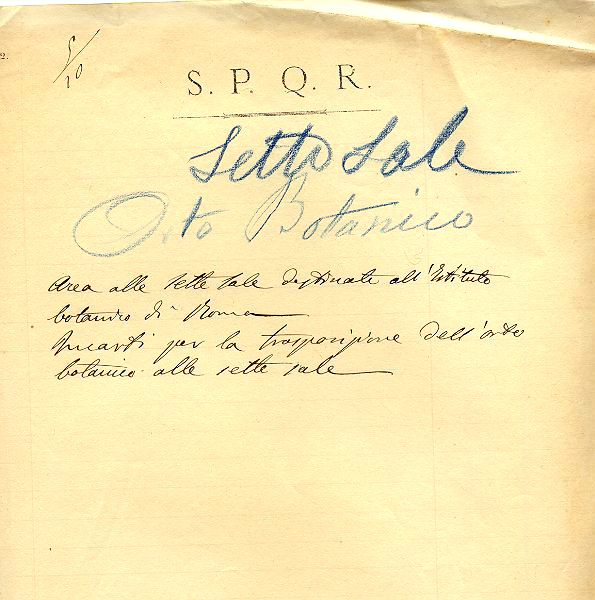 2.
5/10
S. P. Q. R.
Sette Sale
Orto Botanico
Area alle sette sale destinate all'Istituto
botanico di Roma
Incarti per la trasposizione dell'orto
botanico alle sette sale